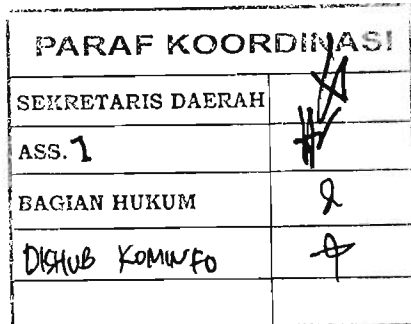 PARAF KOORDINASI
SEKRETARIS DAERAH
ASS. 1
BAGIAN HUKUM
DISHUB KOMINFO